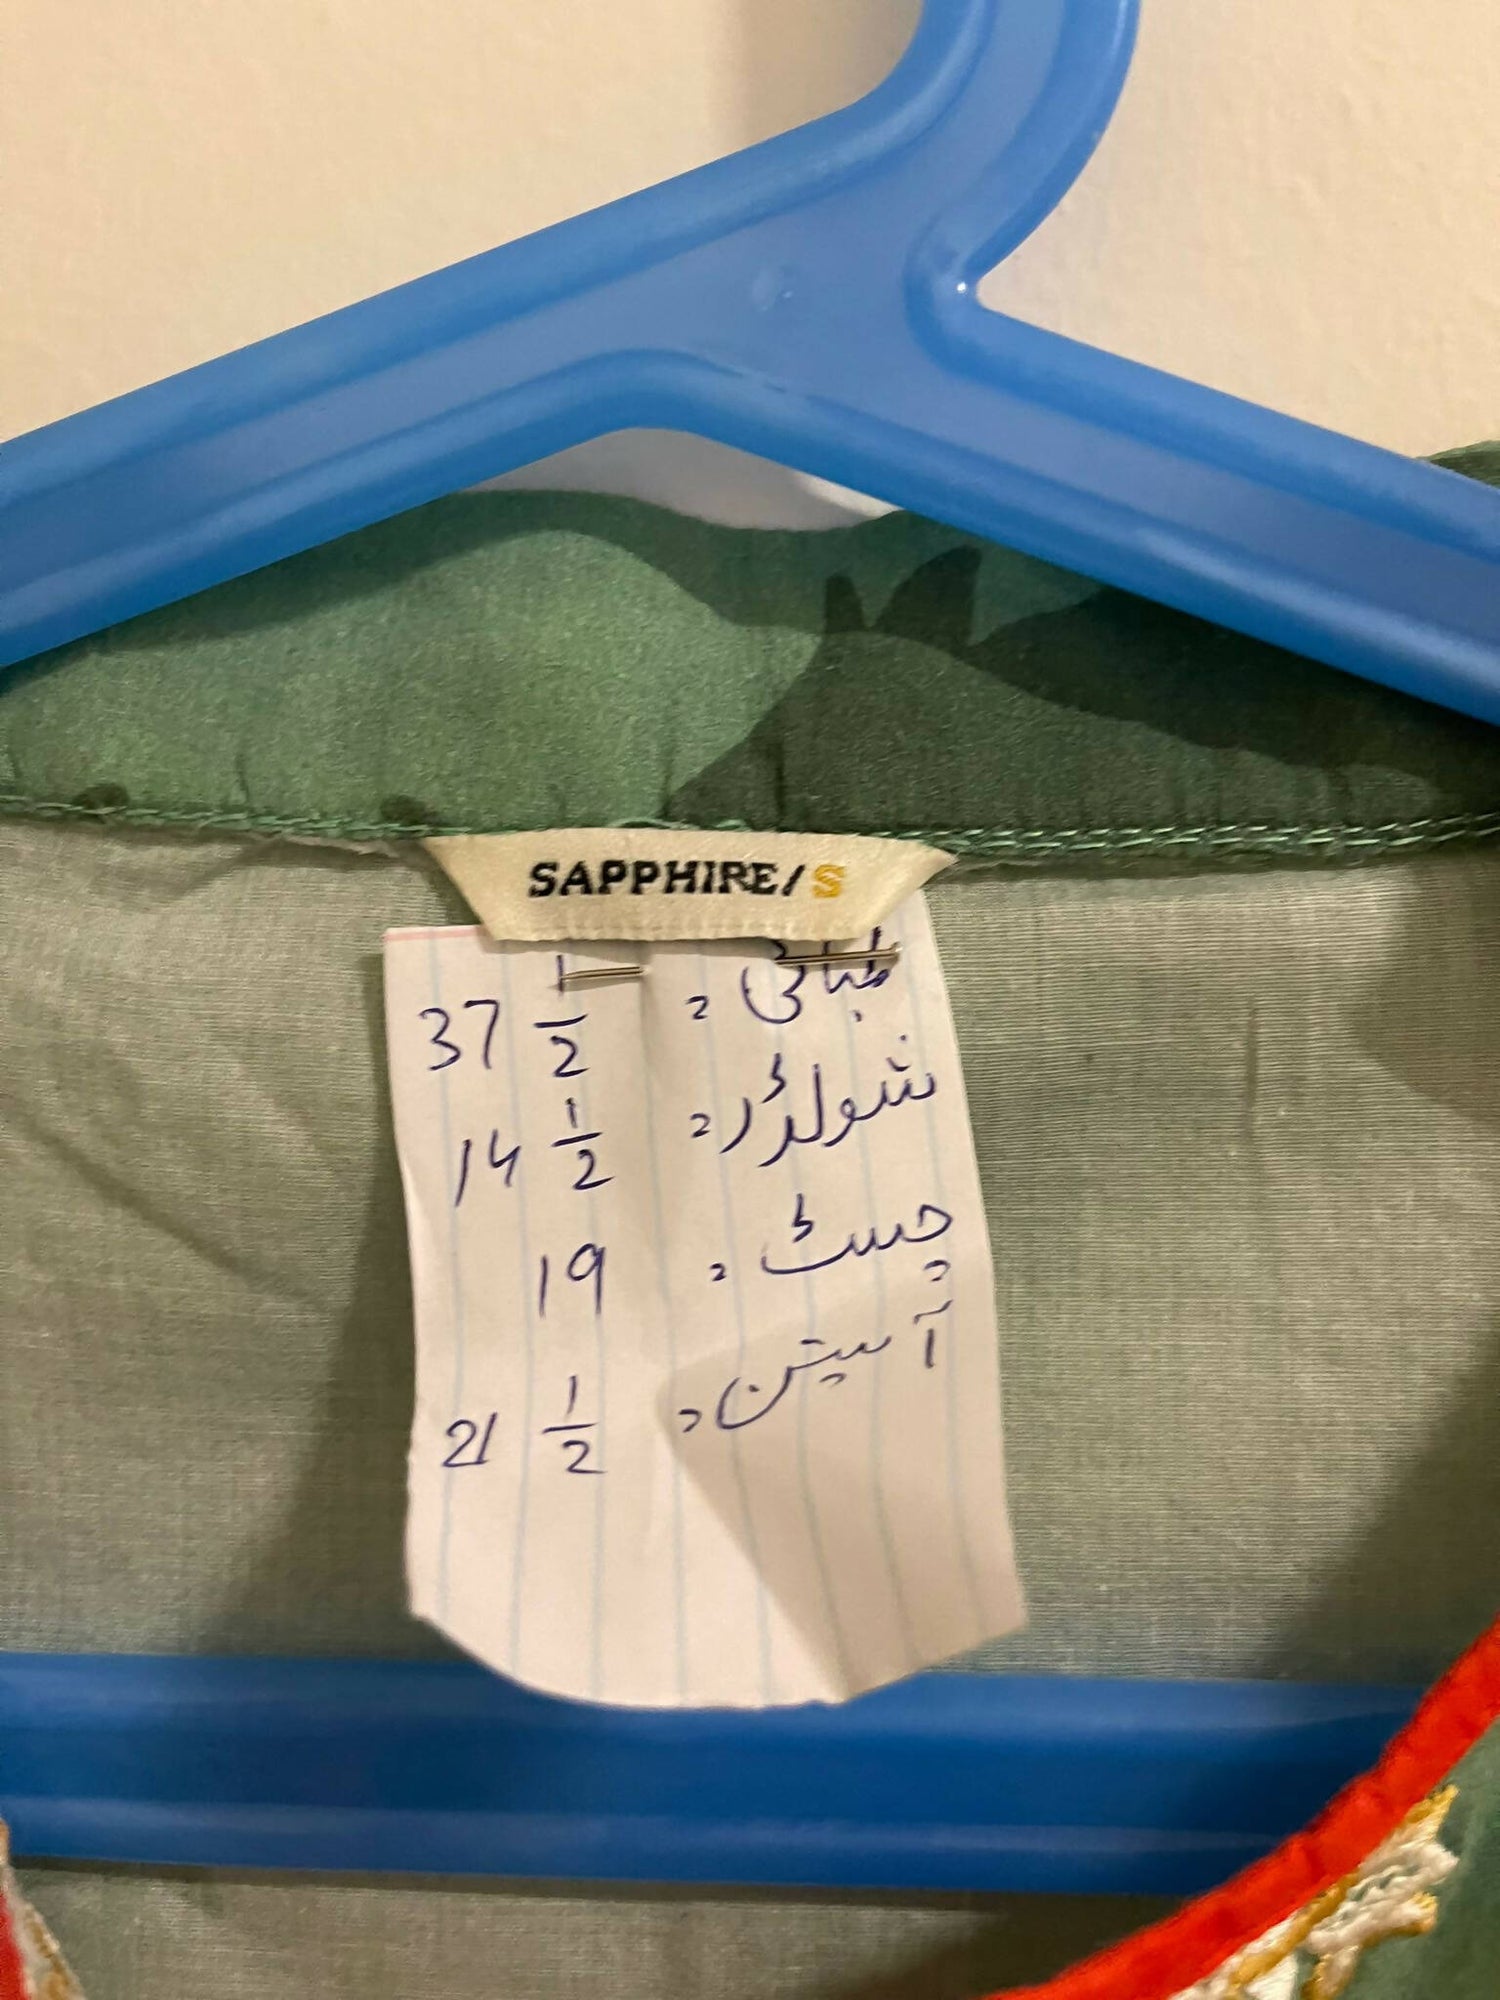 SAPPHIRE/S
لمبائی = 37 1/2
شولڈر = 14 1/2
چسٹ = 19
آستین = 21 1/2